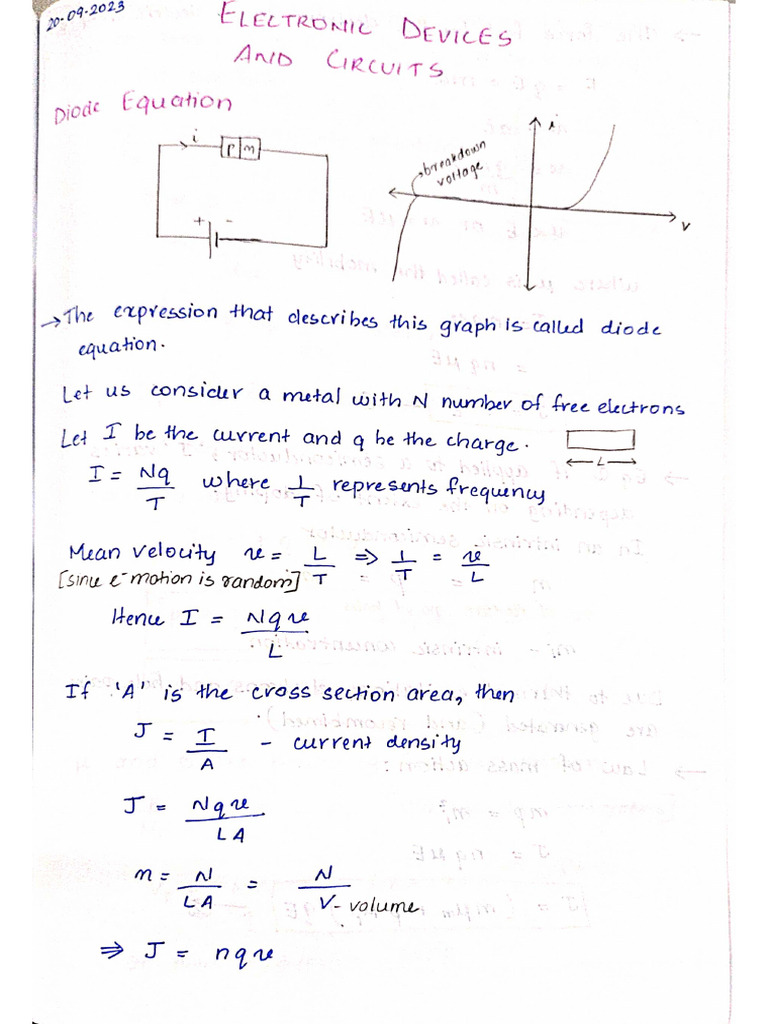 20-09-2023
ELECTRONIC DEVICES
AND CIRCUITS
Diode Equation
i
P n
+ -
breakdown
voltage
i
V
→ The expression that describes this graph is called diode
equation.
Let us consider a metal with N number of free electrons
Let I be the current and q be the charge.
← L →
I = Nq/T where 1/T represents frequency
Mean velocity v = L/T ⇒ 1/T = v/L
[sinu e⁻ motion is random]
Henu I = Nqv/L
If 'A' is the cross section area, then
J = I/A - current density
J = Nqv/LA
n = N/LA = N/V - volume
⇒ J = nqv